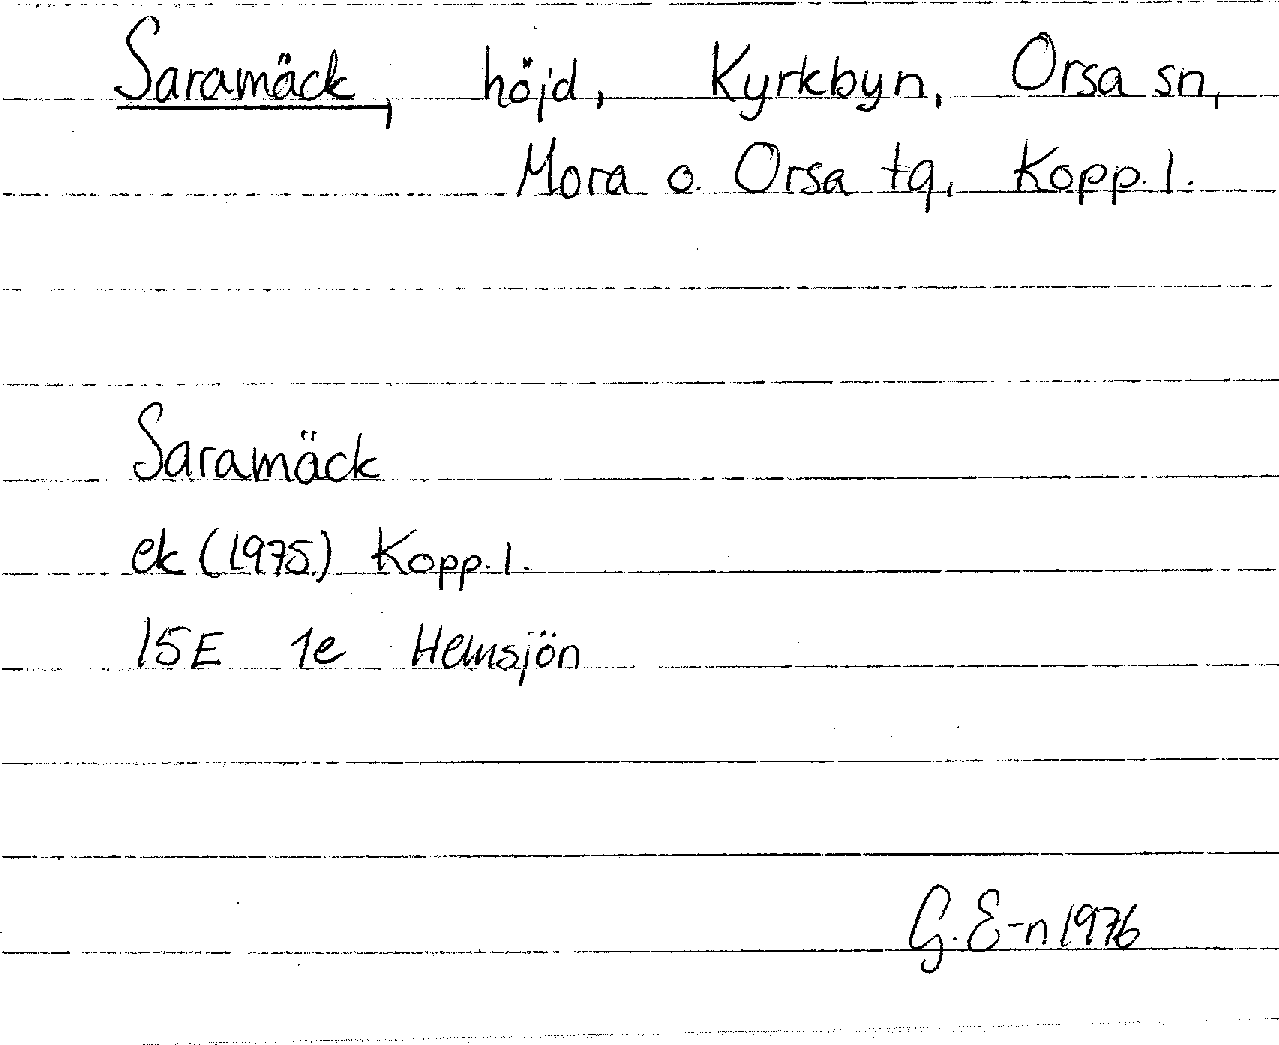 Saramäck, höjd, Kyrkbyn, Orsa sn,
Mora o. Orsa tg, Kopp. l.
Saramäck
ek (1975) Kopp. l.
15E 1e Hemsjön
G. E-n 1976